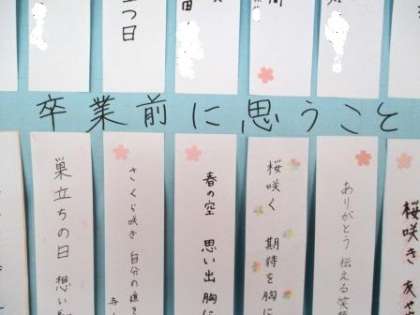 つ日
卒業前に思うこと
桜咲き
ありがとう 伝える笑
桜咲く 期待を胸に
春の空 思い出胸に
さくら咲き 自分の道を
巣立ちの日 想い